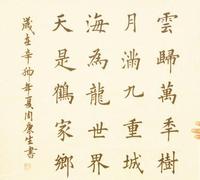 雲歸萬秊樹
月滿九重城
海為龍世界
天是鶴家鄉
歲在辛卯年夏周康生書